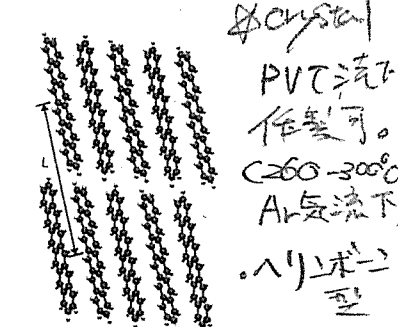 L
☆Crystal
PVT法で
作製可。
(260-300℃
Ar気流下
・ヘリンボーン
型